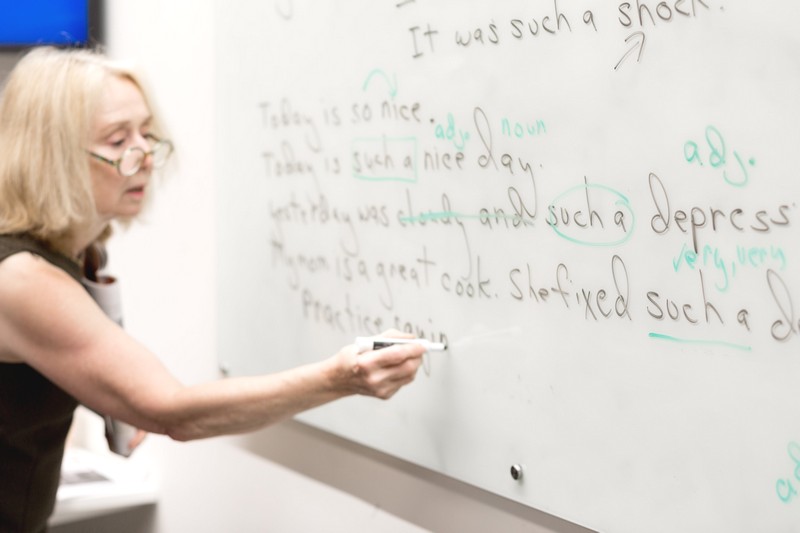 It was such a shock.
Today is so nice.
adj. noun
Today is such a nice day.
adj.
Yesterday was cloudy and such a depress
very, very
Hyeon is a great cook. She fixed such a d
Practice sayin
ad